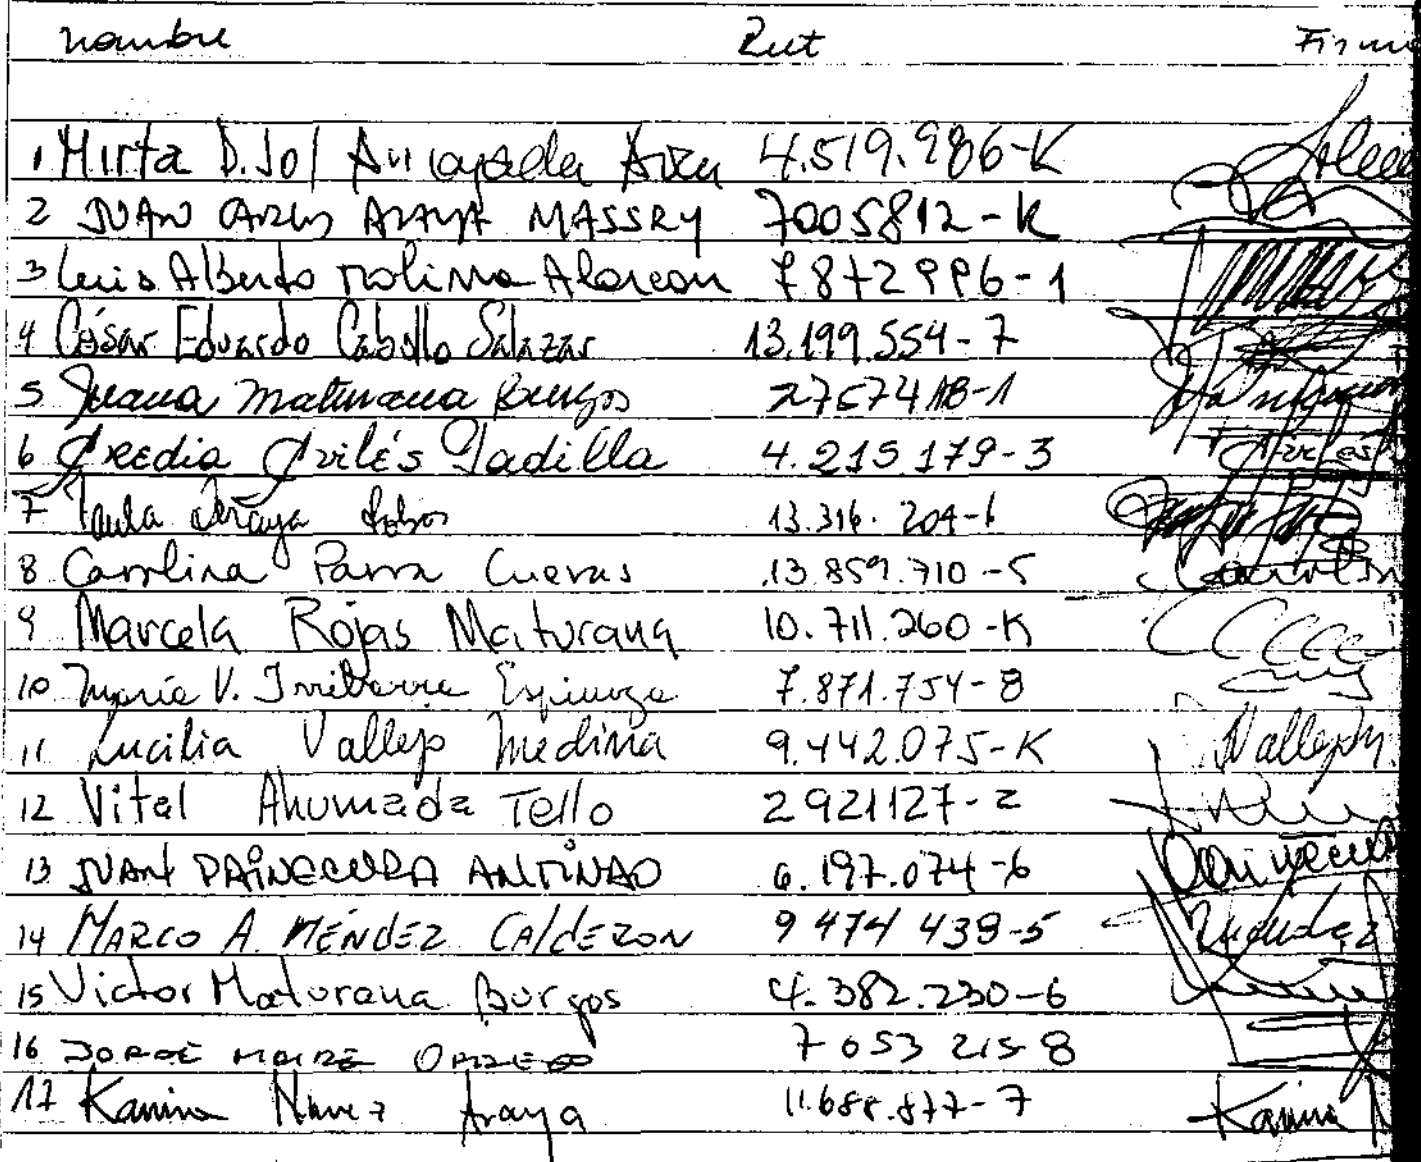 nombre Rut Firma
1 Mirta D. Sol 4.519.986-K
2 JUAN CARLOS ARAYA MASSRY 7005812-K
3 Luis Alberto Molina Alarcon 7872996-1
4 César Eduardo Cabello Salazar 13.199.554-7
5 Juana Maturana Burgos
6 Avilés Padilla 4.215 179-3
7 Paula Araya Lobos 13.316.204-6
8 Carolina Parra Cuevas 13.859.710-5 Carolin
9 Marcela Rojas Maturana 10.711.260-K
10 María V. Irribarra Espinoza 7.871.754-8
11 Lucilia Vallejo Medina 9.442.075-K
12 Vital Ahumada Tello 2921127-2
13 JUAN PAINECURA ANTINAO 6.197.074-6
14 MARCO A. MÉNDEZ CALDERON 9 474 439-5
15 Victor Maturana Burgos 4.382.230-6
16 JORGE 7 053 215-8
17 Karina Nunez Araya 11.688.877-7 Karina N